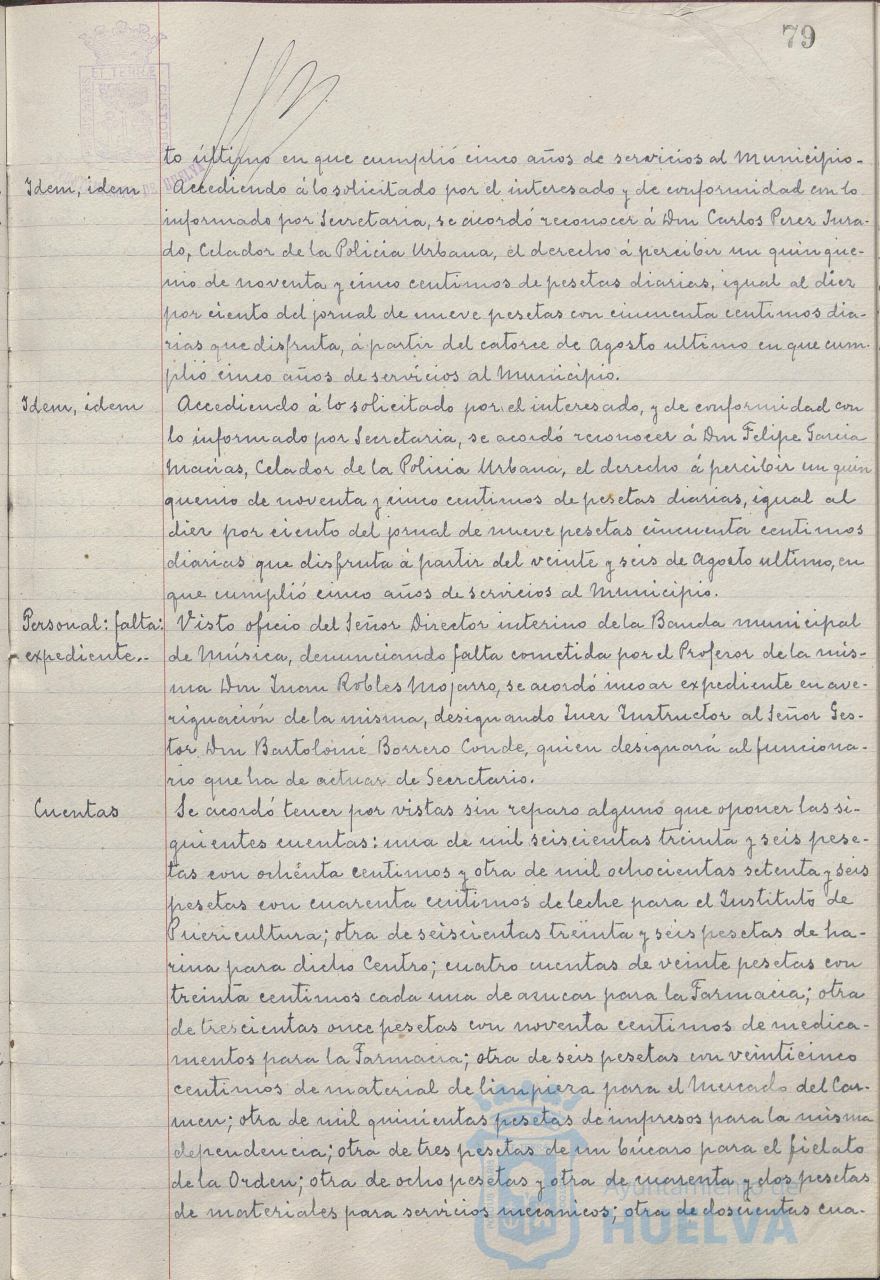 79
to último en que cumplió cinco años de servicios al Municipio.-
Idem, idem
Accediendo á lo solicitado por el interesado y de conformidad con lo
informado por Secretaria, se acordó reconocer á Don Carlos Perez Jura-
do, Celador de la Policia Urbana, el derecho á percibir un quinque-
nio de noventa y cinco centimos de pesetas diarias, igual al diez
por ciento del jornal de nueve pesetas con cincuenta centimos dia-
rias que disfruta, á partir del catorce de Agosto ultimo en que cum-
plió cinco años de servicios al Municipio.
Idem, idem
Accediendo á lo solicitado por el interesado, y de conformidad con
lo informado por Secretaria, se acordó reconocer á Don Felipe Garcia
Macias, Celador de la Policia Urbana, el derecho á percibir un quin
quenio de noventa y cinco centimos de pesetas diarias, igual al
diez por ciento del jornal de nueve pesetas cincuenta centimos
diarias que disfruta á partir del veinte y seis de Agosto ultimo, en
que cumplió cinco años de servicios al Municipio.
Personal: falta:
expediente.-
Visto oficio del Señor Director interino de la Banda municipal
de Música, denunciando falta cometida por el Profesor de la mis-
ma Don Juan Robles Mojarro, se acordó incoar expediente en ave-
riguación de la misma, designando Juez Instructor al Señor Ges-
tor Don Bartolomé Borrero Conde, quien designará al funciona-
rio que ha de actuar de Secretario.
Cuentas
Se acordó tener por vistas sin reparo alguno que oponer las si-
guientes cuentas: una de mil seiscientas treinta y seis pese-
tas con ochenta centimos y otra de mil ochocientas setenta y seis
pesetas con cuarenta centimos de leche para el Instituto de
Puericultura; otra de seiscientas treinta y seis pesetas de ha-
rina para dicho Centro; cuatro cuentas de veinte pesetas con
treinta centimos cada una de azucar para la Farmacia; otra
de trescientas once pesetas con noventa centimos de medica-
mentos para la Farmacia; otra de seis pesetas con veinticinco
centimos de material de limpieza para el Mercado del Car-
men; otra de mil quinientas pesetas de impresos para la misma
dependencia; otra de tres pesetas de un búcaro para el fielato
de la Orden; otra de ocho pesetas y otra de cuarenta y dos pesetas
de materiales para servicios mecanicos; otra de doscientas cua-
Ayuntamiento de
HUELVA